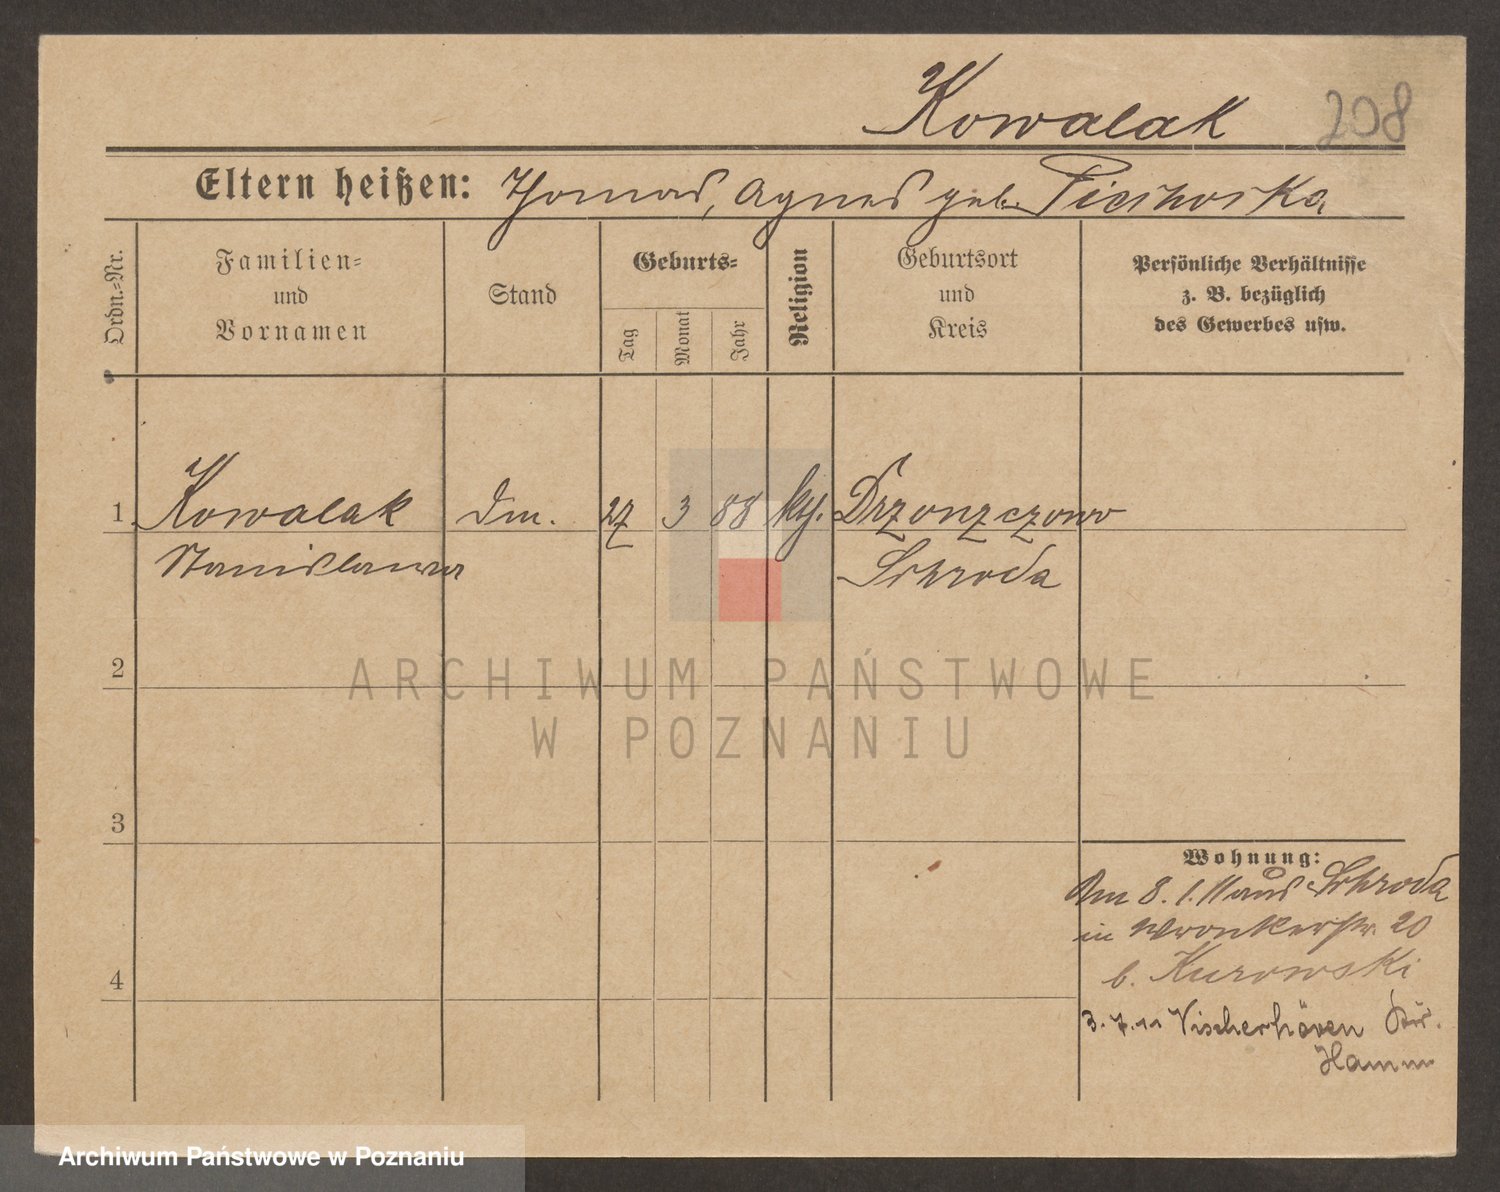 Kowalak 208
Eltern heißen: Thomas, Agnes geb.
Ordn.-Nr.
Familien-
und
Vornamen
Stand
Geburts-
Tag
Monat
Jahr
Religion
Geburtsort
und
Kreis
Persönliche Verhältnisse
z. B. bezüglich
des Gewerbes usw.
1 Kowalak Dm. 27 3 88 kth. Drzonzczowo
Stanislawa Schroda
2
3
4
Wohnung:
Am 8. 1. 11 aus Schroda
in Wronkerstr. 20
b. Kurowski
3. 7. 11 Vischerhöven
Hamm
ARCHIWUM PAŃSTWOWE
W POZNANIU
Archiwum Państwowe w Poznaniu